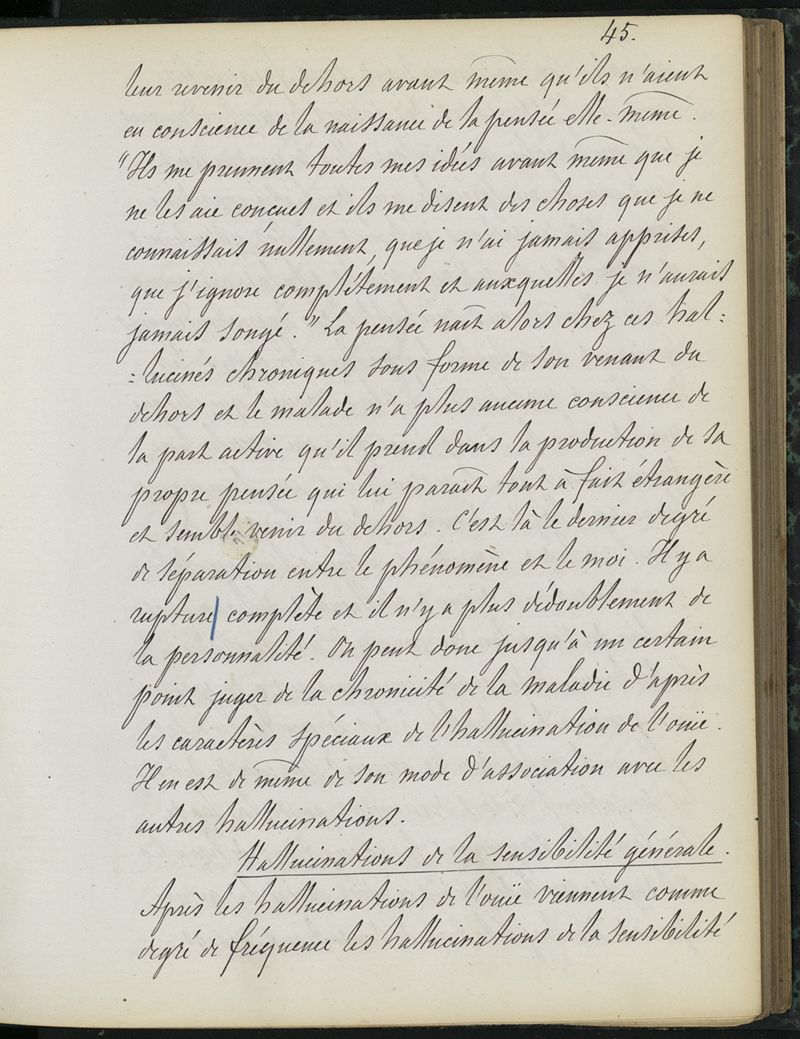 45.
leur revenir du dehors avant même qu'ils n'aient
eu conscience de la naissance de la pensée elle-même.
"Ils me prennent toutes mes idées avant même que je
ne les aie conçues et ils me disent des choses que je ne
connaissais nullement, que je n'ai jamais apprises,
que j'ignore complétement et auxquelles je n'aurais
jamais songé." La pensée naît alors chez ces hal=
=lucinés chroniques sous forme de son venant du
dehors et le malade n'a plus aucune conscience de
la part active qu'il prend dans la production de sa
propre pensée qui lui paraît tout à fait étrangère
et semble venir du dehors. C'est là le dernier degré
de séparation entre le phénomène et le moi. Il y a
rupture complète et il n'y a plus dédoublement de
la personnalité. On peut donc jusqu'à un certain
point juger de la chronicité de la maladie d'après
les caractères spéciaux de l'hallucination de l'ouïe.
Il en est de même de son mode d'association avec les
autres hallucinations.
Hallucinations de la sensibilité générale.
Après les hallucinations de l'ouïe viennent comme
degré de fréquence les hallucinations de la sensibilité